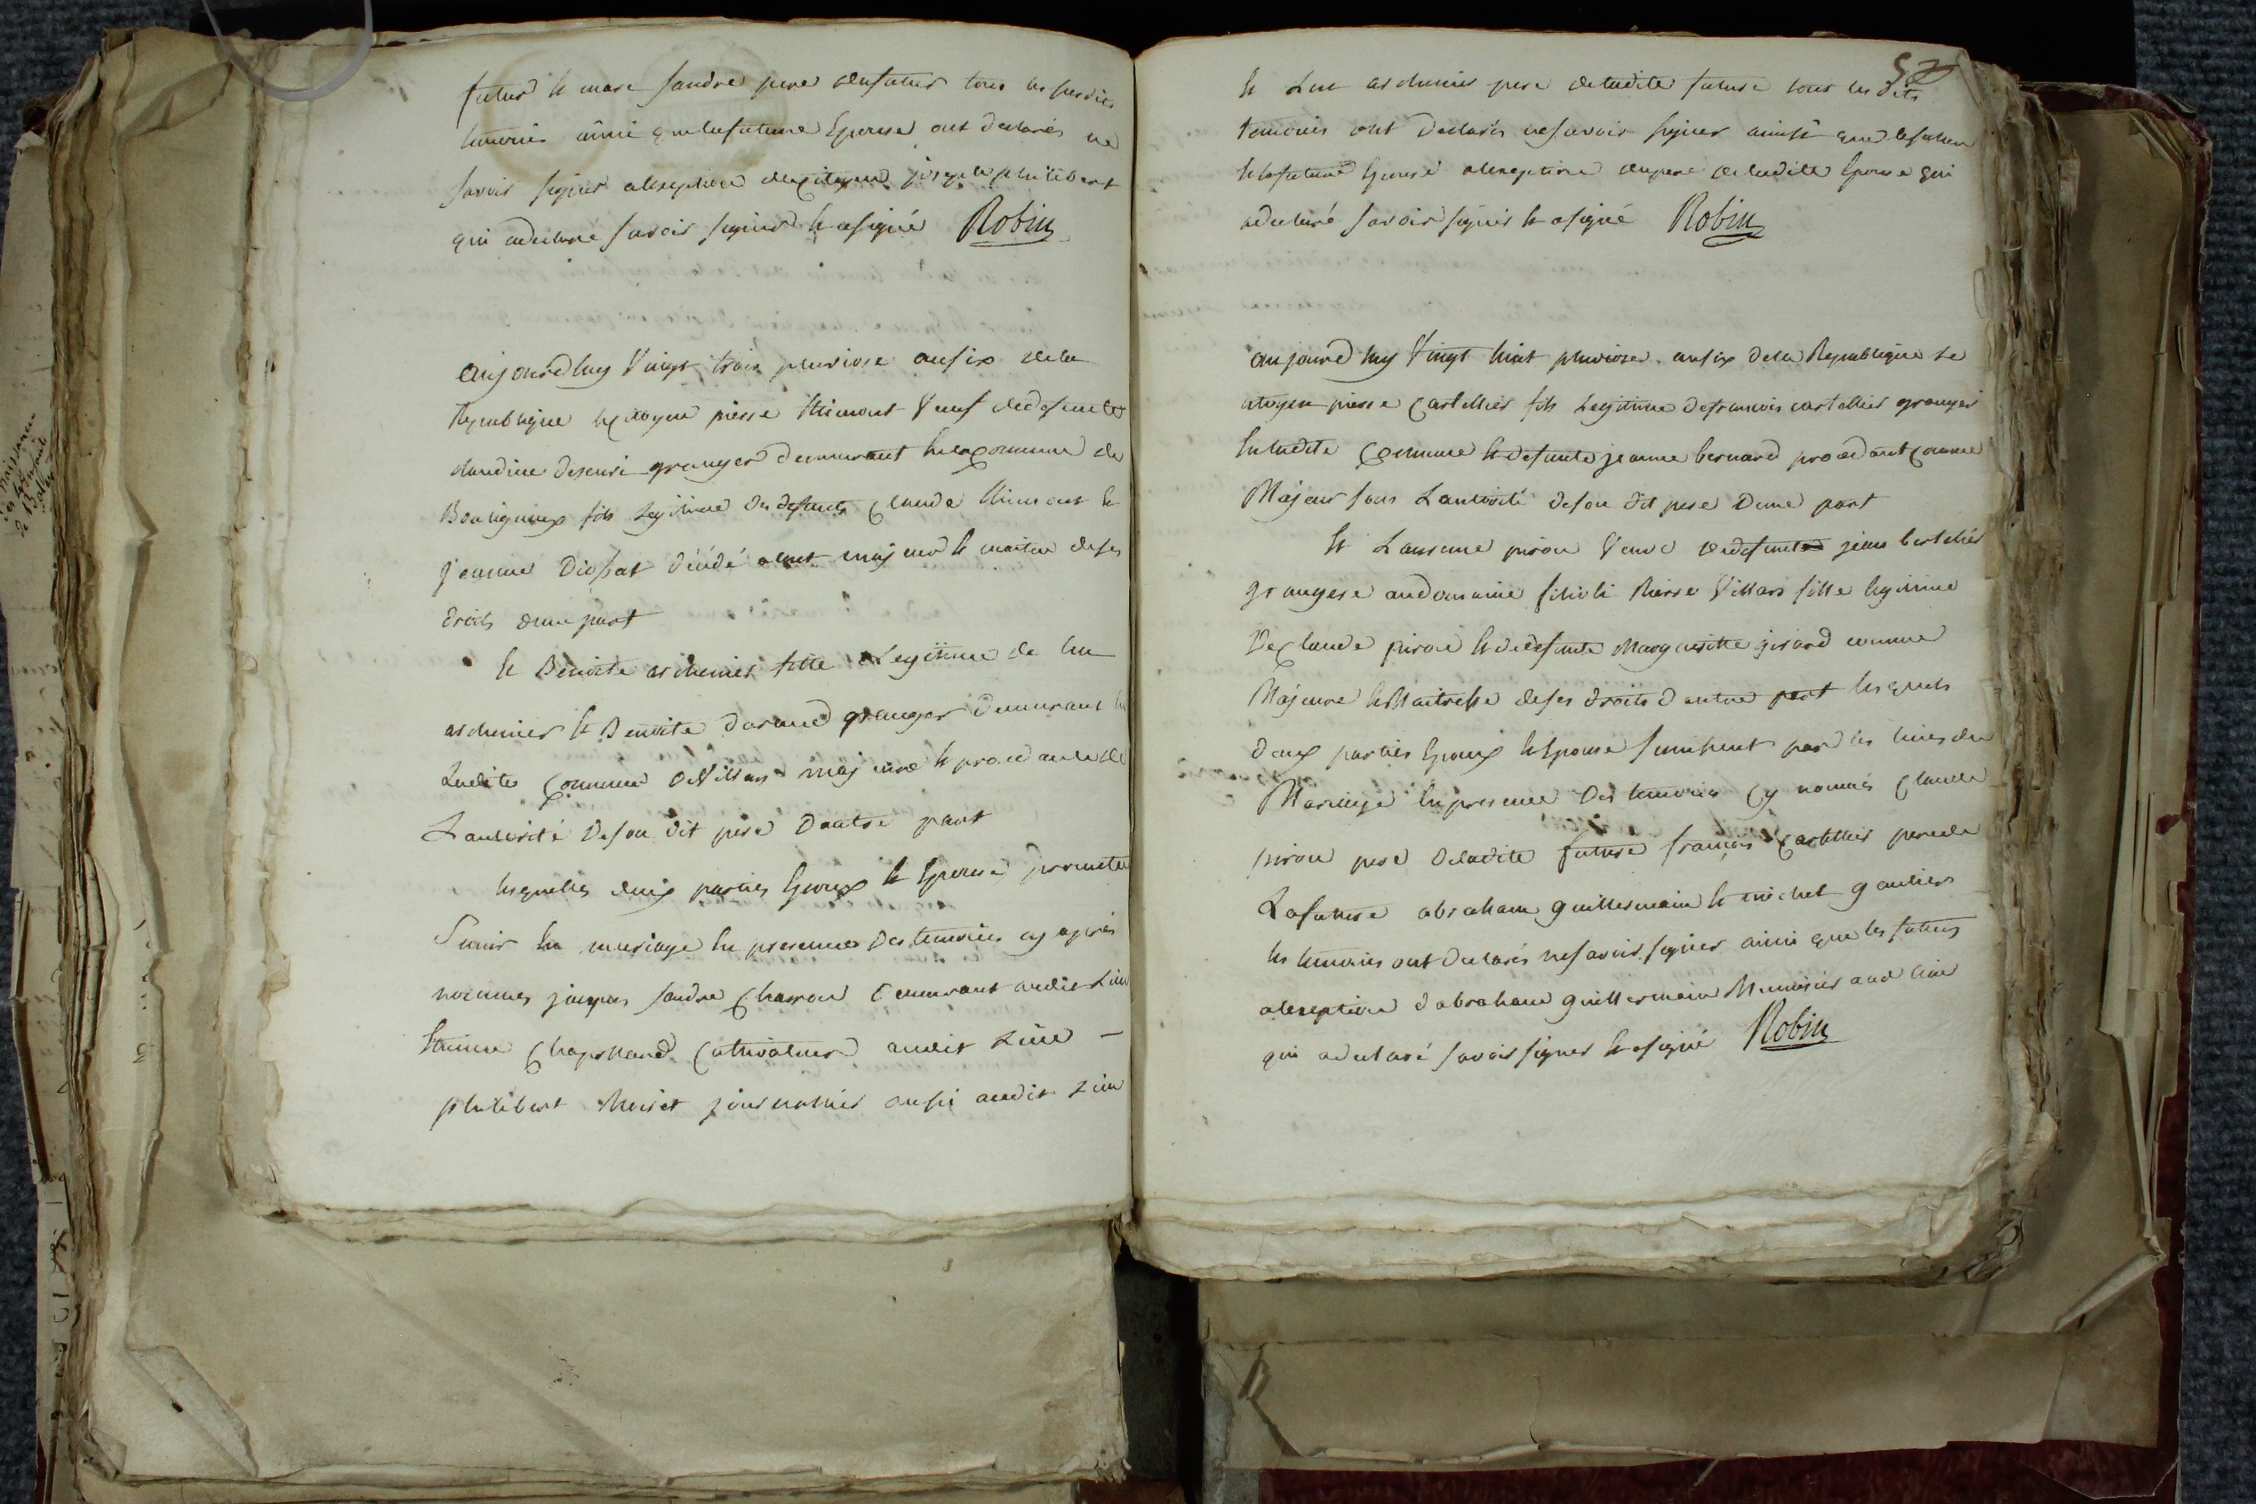 futur et marc fandre pere dufutur tous les susdits
temoins ainsi que lafuture Epouse ont declarés ne
savoir signer alexeption ducitoyen joseph philibert
qui adeclare savoir signer et asigné Robin
aujourdhuy Vingt trois pluviose ansix dela
Republique le citoyen pierre thimont Veuf dedefunte
claudine granger demeurant en lacommune de
Bouligneux fils Legitime des defunts Claude thimont et
jeanne Diossat décédé aleut majeur et maitre deses
droits dune part
Et Benoite archenier fille Legitime de Luc
archenier et Benoite durand granger demeurant en
Ladite Commune deVillars majeure et procedante de
Lautorité deson dit pere Dautre part
lesquelles deux parties Epoux et Epouse promettent
Sunir en mariage en presence des temoins cy apres
nommes jacques fandre Charron demeurant audit Lieu
Etienne Chapolland Cultivateur audit Lieu –
philibert Moiret journallier aussi audit Lieu
52
Et Luc archenier pere deladite future tous les dits
temoins ont declarés nesavoir signer ainsi que lefutur
et lafuture Epouse alexeption dupere deladite Epouse qui
adeclaré savoir signer et asigné Robin
aujourd huy Vingt huit pluviose ansix dela Republique Le
citoyen pierre Cartellier fils Legitime defrancois cartellier granger
en ladite Commune et defunte jeanne bernard procedant comme
Majeur sous Lautorité deson dit pere Dune part
Et Laurence piron Veuve dedefunt jean bertelier
grangere audomaine Pierre Villars fille legitime
de Claude piron et dedefunte Margueritte girard comme
Majeure et Maitresse deses droits dautre part lesquels
deux parties Epoux et Epouse sunissent par les liens du
Mariage en presence des temoins cy nommés Claude
piron pere deladite future françois Cartellier pere de
Lafuture abraham guillermain et michel gautier
les temoins ont declarés nesavoir signer ainsi que les futurs
alexeption dabraham guillermain Menuisier aud lieu
qui adeclaré savoir signer et asigné Robin